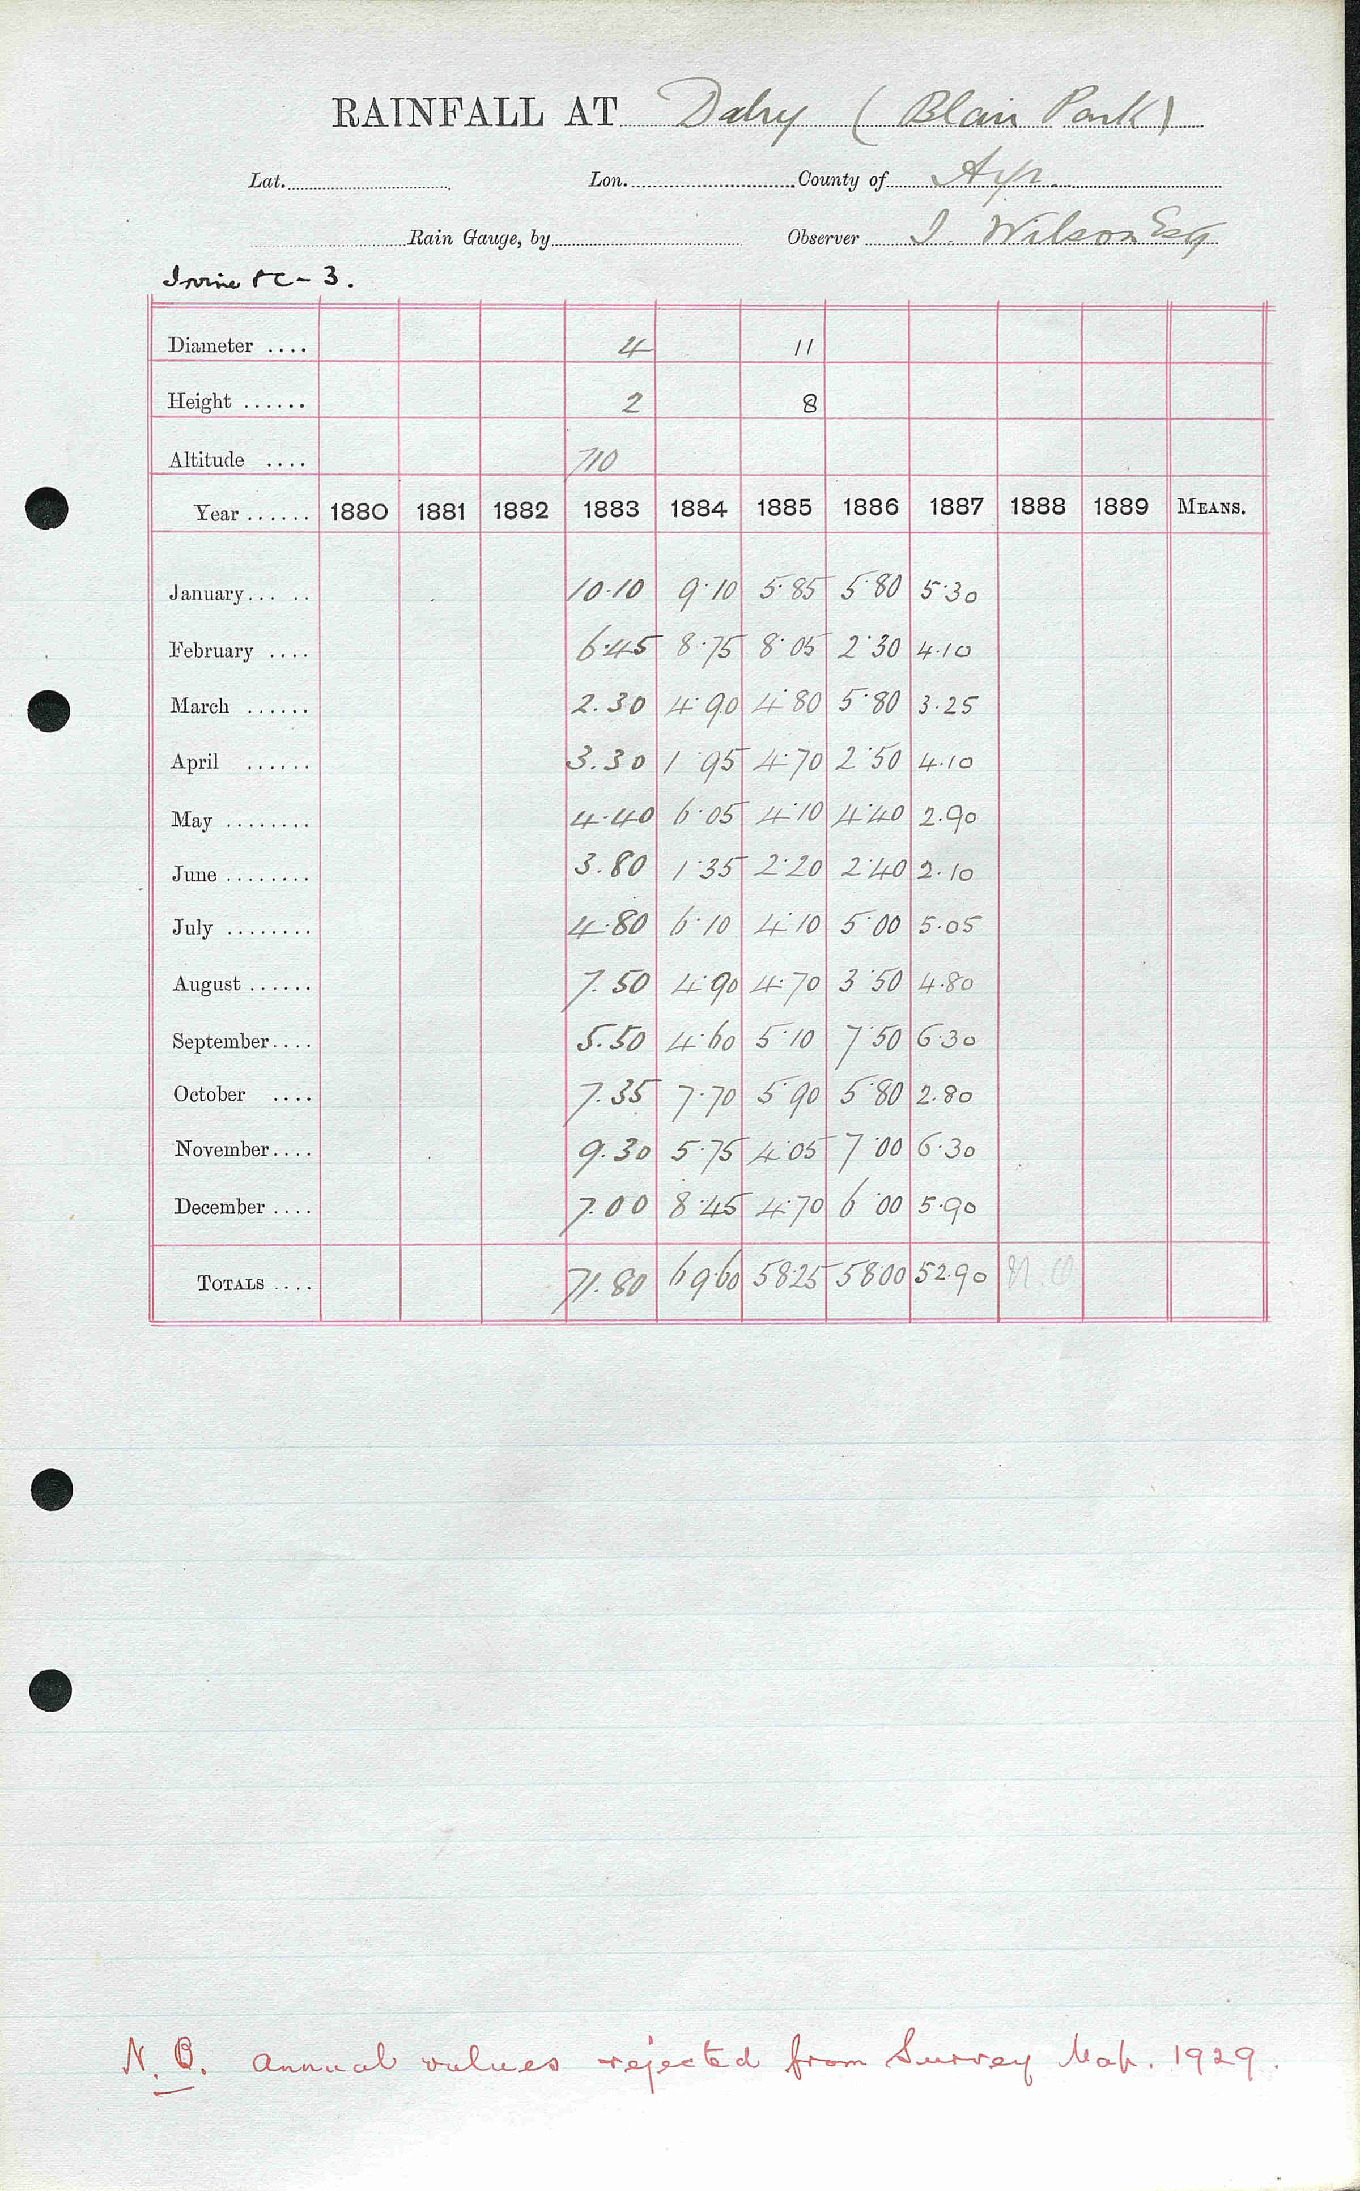 RAINFALL AT Dalry ( Blair Park )
Lat. Lon. County of Ayr.
Rain Gauge, by Observer J. Wilson Esq
Irvine RC - 3.
Diameter .... 4 11
Height ...... 2 8
Altitude .... 710
Year ...... 1880 1881 1882 1883 1884 1885 1886 1887 1888 1889 MEANS.
January... .. 10.10 9.10 5.85 5.80 5.30
February .... 6.45 8.75 8.05 2.30 4.10
March ...... 2.30 4.90 4.80 5.80 3.25
April ...... 3.30 1.95 4.70 2.50 4.10
May ........ 4.40 6.05 4.10 4.40 2.90
June ........ 3.80 1.35 2.20 2.40 2.10
July ........ 4.80 6.10 4.10 5.00 5.05
August ...... 7.50 4.90 4.70 3.50 4.80
September.... 5.50 4.60 5.10 7.50 6.30
October .... 7.35 7.70 5.90 5.80 2.80
November.... 9.30 5.75 4.05 7.00 6.30
December .... 7.00 8.45 4.70 6.00 5.90
TOTALS .... 71.80 69.60 58.25 58.00 52.90
N.B. Annual values rejected from Survey Map. 1929.